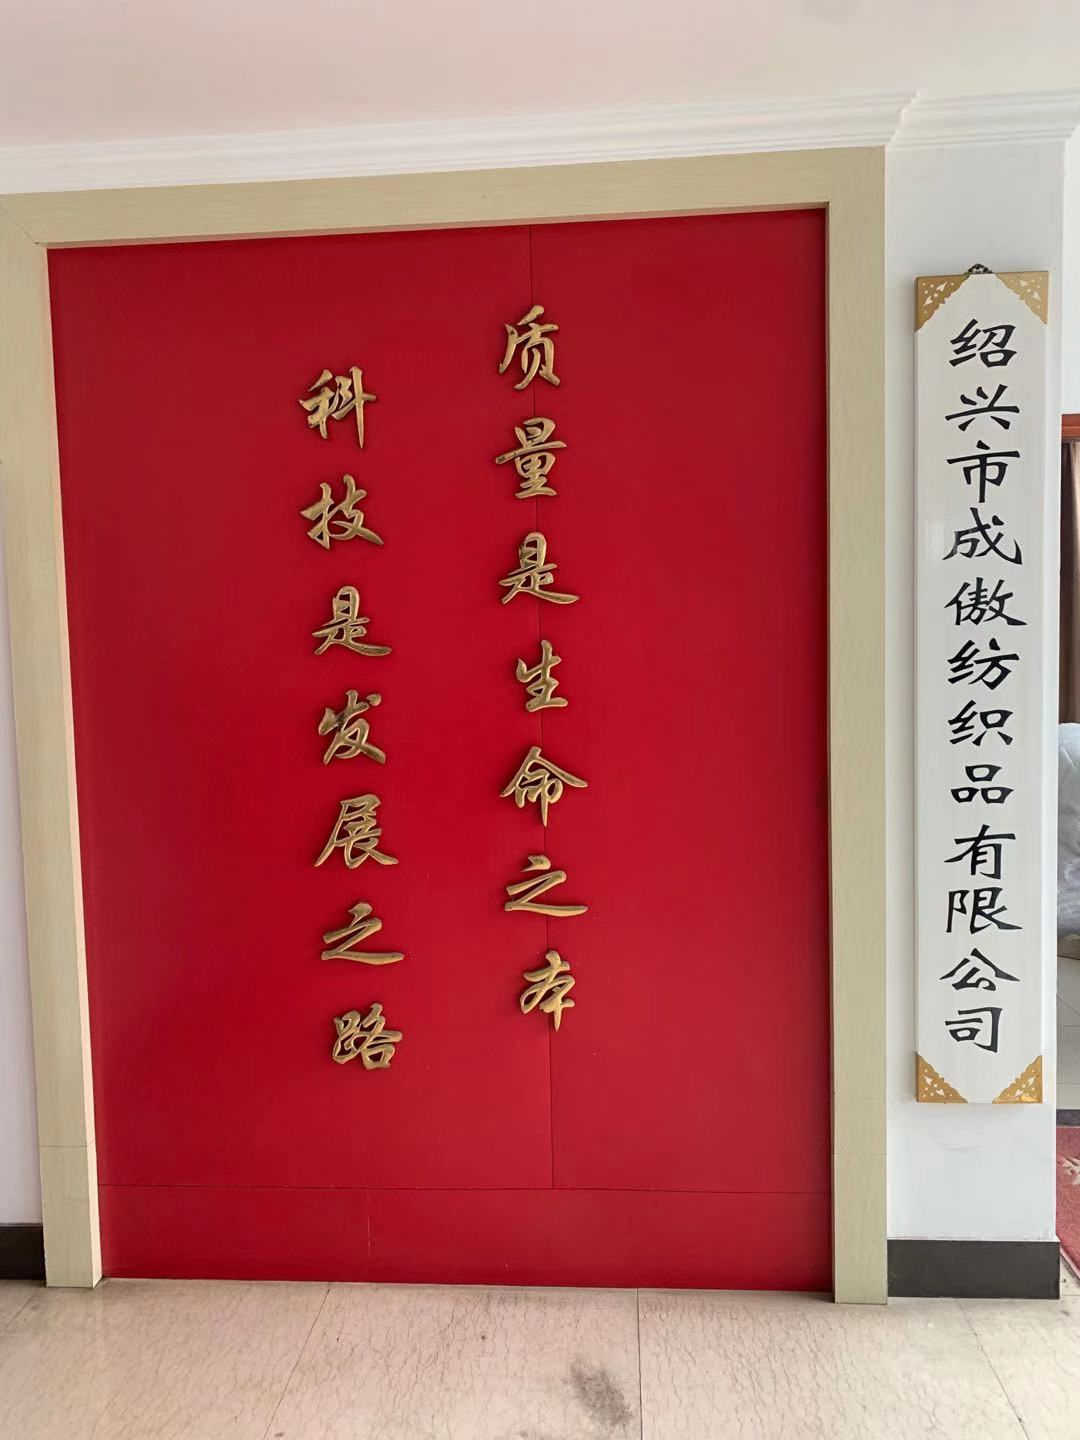 质量是生命之本
科技是发展之路
绍兴市成傲纺织品有限公司